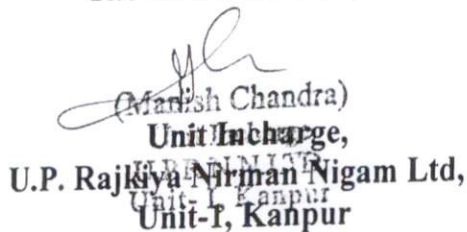 (Manish Chandra)
Unit Incharge,
U.P. Rajkiya Nirman Nigam Ltd,
Unit-I, Kanpur
Unit-1, Kanpur